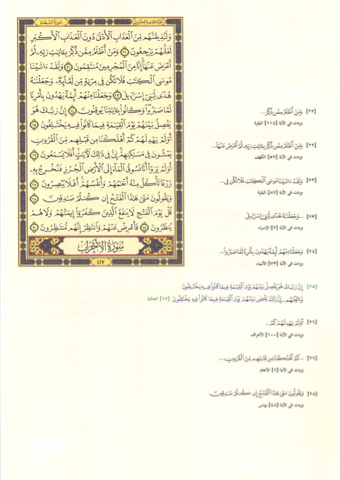 سورة السجدة
وَلَنُذِيقَنَّهُم مِّنَ ٱلْعَذَابِ ٱلْأَدْنَىٰ دُونَ ٱلْعَذَابِ ٱلْأَكْبَرِ
لَعَلَّهُمْ يَرْجِعُونَ ٢١ وَمَنْ أَظْلَمُ مِمَّن ذُكِّرَ بِـَٔايَٰتِ رَبِّهِۦ ثُمَّ
أَعْرَضَ عَنْهَآ إِنَّا مِنَ ٱلْمُجْرِمِينَ مُنتَقِمُونَ ٢٢ وَلَقَدْ ءَاتَيْنَا
مُوسَى ٱلْكِتَٰبَ فَلَا تَكُن فِى مِرْيَةٍ مِّن لِّقَآئِهِۦ وَجَعَلْنَٰهُ
هُدًى لِّبَنِىٓ إِسْرَٰٓءِيلَ ٢٣ وَجَعَلْنَا مِنْهُمْ أَئِمَّةً يَهْدُونَ بِأَمْرِنَا
لَمَّا صَبَرُوا۟ وَكَانُوا۟ بِـَٔايَٰتِنَا يُوقِنُونَ ٢٤ إِنَّ رَبَّكَ هُوَ
يَفْصِلُ بَيْنَهُمْ يَوْمَ ٱلْقِيَٰمَةِ فِيمَا كَانُوا۟ فِيهِ يَخْتَلِفُونَ ٢٥
أَوَلَمْ يَهْدِ لَهُمْ كَمْ أَهْلَكْنَا مِن قَبْلِهِم مِّنَ ٱلْقُرُونِ
يَمْشُونَ فِى مَسَٰكِنِهِمْ إِنَّ فِى ذَٰلِكَ لَـَٔايَٰتٍ أَفَلَا يَسْمَعُونَ ٢٦
أَوَلَمْ يَرَوْا۟ أَنَّا نَسُوقُ ٱلْمَآءَ إِلَى ٱلْأَرْضِ ٱلْجُرُزِ فَنُخْرِجُ بِهِۦ
زَرْعًا تَأْكُلُ مِنْهُ أَنْعَٰمُهُمْ وَأَنفُسُهُمْ أَفَلَا يُبْصِرُونَ ٢٧
وَيَقُولُونَ مَتَىٰ هَٰذَا ٱلْفَتْحُ إِن كُنتُمْ صَٰدِقِينَ ٢٨
قُلْ يَوْمَ ٱلْفَتْحِ لَا يَنفَعُ ٱلَّذِينَ كَفَرُوٓا۟ إِيمَٰنُهُمْ وَلَا هُمْ
يُنظَرُونَ ٢٩ فَأَعْرِضْ عَنْهُمْ وَٱنتَظِرْ إِنَّهُم مُّنتَظِرُونَ ٣٠
سُورَةُ الأَحْزَابِ
٤١٧
[٢٢] وَمَنْ أَظْلَمُ مِمَّن ذُكِّرَ...
وردت في الآية [١١٤] البقرة
[٢٢] وَمَنْ أَظْلَمُ مِمَّن ذُكِّرَ بِـَٔايَٰتِ رَبِّهِۦ ثُمَّ أَعْرَضَ عَنْهَآ...
وردت في الآية [٥٧] الكهف
[٢٣] وَلَقَدْ ءَاتَيْنَا مُوسَى ٱلْكِتَٰبَ فَلَا تَكُن فِى...
وردت في الآية [٨٧] البقرة
[٢٣] ...وَجَعَلْنَٰهُ هُدًى لِّبَنِىٓ إِسْرَٰٓءِيلَ
وردت في الآية [٢] الإسراء
[٢٤] وَجَعَلْنَا مِنْهُمْ أَئِمَّةً يَهْدُونَ بِأَمْرِنَا لَمَّا صَبَرُوا۟...
وردت في الآية [٧٣] الأنبياء
[٢٥] إِنَّ رَبَّكَ هُوَ يَفْصِلُ بَيْنَهُمْ يَوْمَ ٱلْقِيَٰمَةِ فِيمَا كَانُوا۟ فِيهِ يَخْتَلِفُونَ
إِنَّ رَبَّكَ يَقْضِى بَيْنَهُمْ يَوْمَ ٱلْقِيَٰمَةِ فِيمَا كَانُوا۟ فِيهِ يَخْتَلِفُونَ [١٧] الجاثية
[٢٦] أَوَلَمْ يَهْدِ لَهُمْ كَمْ...
وردت في الآية [١٠٠] الأعراف
[٢٦] ...كَمْ أَهْلَكْنَا مِن قَبْلِهِم مِّنَ ٱلْقُرُونِ...
وردت في الآية [٦] الأنعام
[٢٨] وَيَقُولُونَ مَتَىٰ هَٰذَا ٱلْفَتْحُ إِن كُنتُمْ صَٰدِقِينَ
وردت في الآية [٤٨] يونس